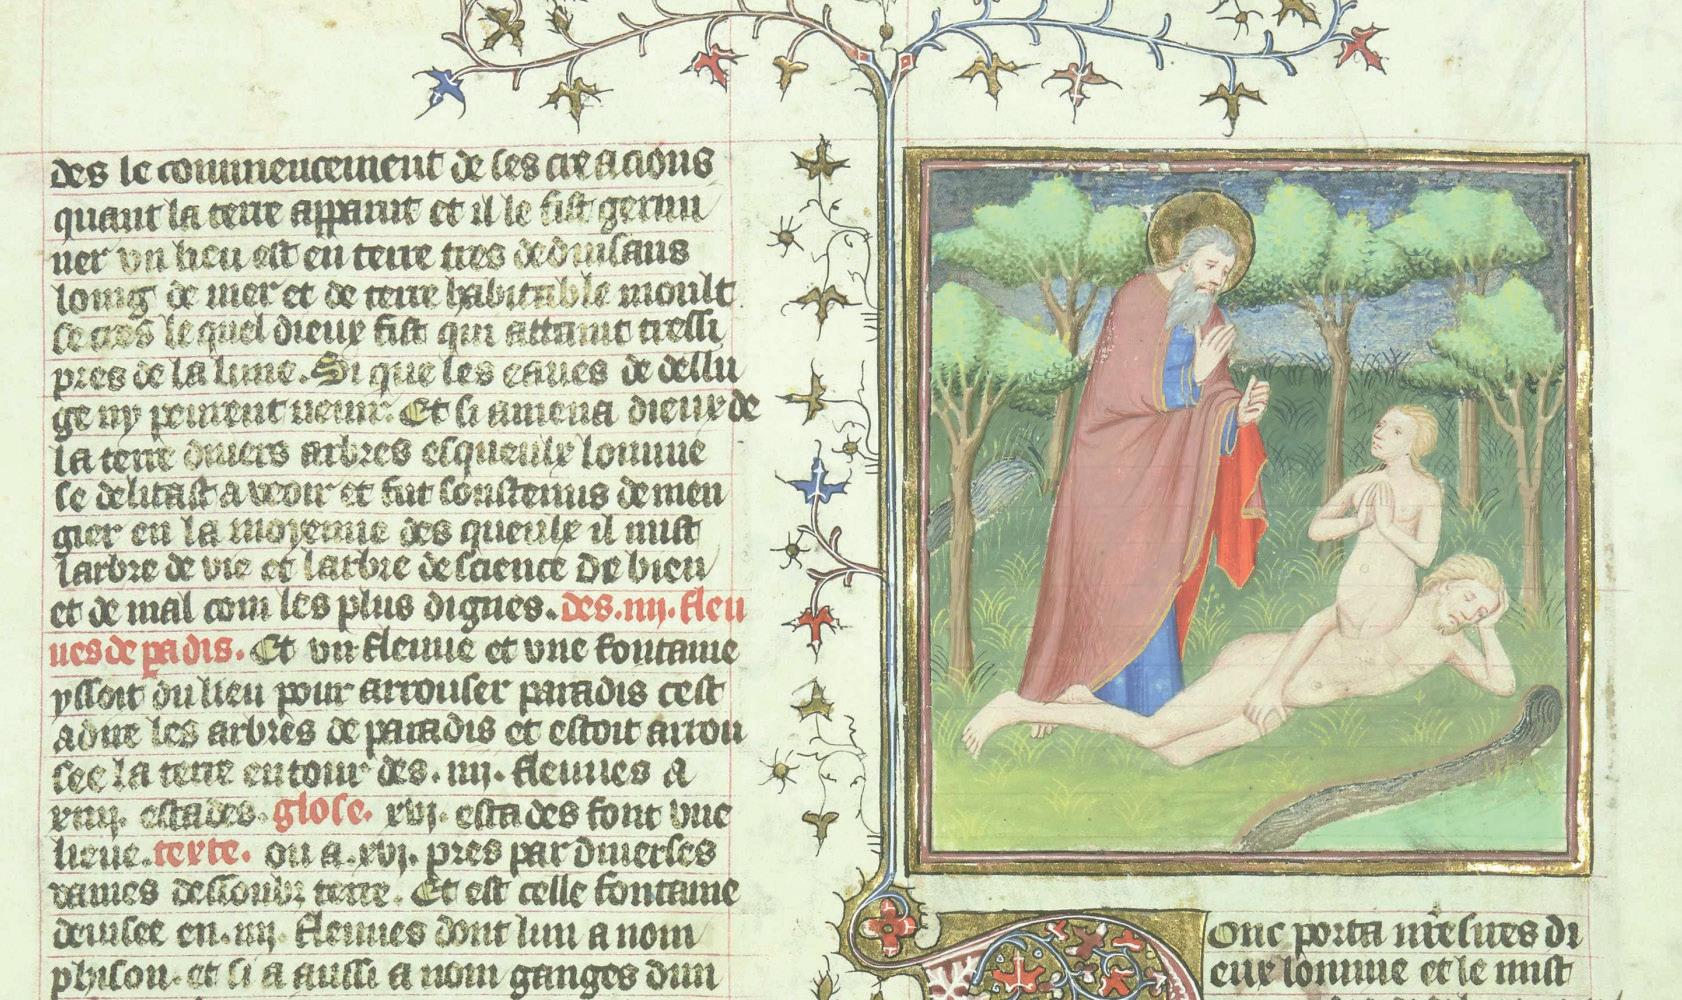 des le commencement de ses creacions
quant la terre apparut et il le fist germi
ner vn lieu est en terre tres deduisans
loing de mer et de terre habitable moult
le quel dieux fist qui attaint tressi
pres de la lune. Si que les eaues de dellu
ge ny peurent uenir. Et si amena dieux de
la terre diuers arbres esqueulx lomme
se delitast a veoir et fut soustenus de men
gier en la moyenne des queulx il mist
larbre de vie et larbre de science de bien
et de mal com les plus dignes. des .iiii. fleu
ues de padis. Et vn fleuue et vne fontaine
yssoit du lieu pour arrouser paradis cest
adire les arbres de paradis et estoit arrou
see la terre entour des .iiii. fleuues a
estades. glose. xvi. estades font vne
lieue. texte. ou a .xvi. pres par diuerses
vaines dessoubz terre. Et est celle fontaine
deuisee en .iiii. fleuues dont lun a nom
phison. et si a aussi a nom ganges dun
Donc porta nre sires di
eux lomme et le mist